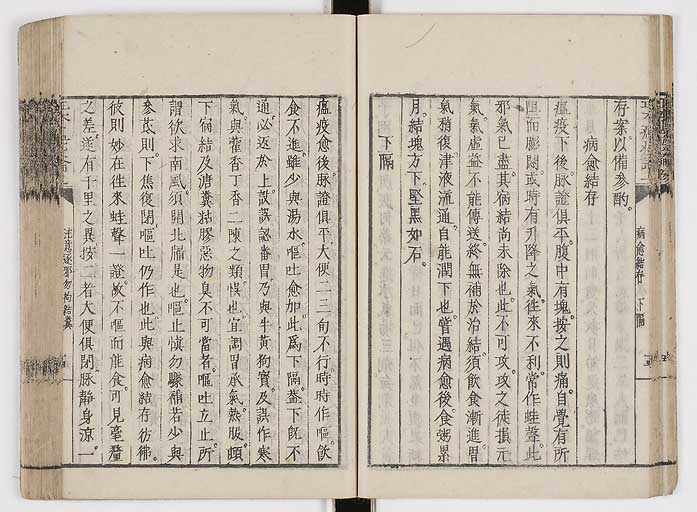 存案以備參酌
病愈結存
瘟疫下後脉證俱平腹中有塊按之則痛自覺有所
阻而膨悶或時有升降之氣徃來不利常作蛙聲此
邪氣已盡其宿結尚未除也此不可攻攻之徒損元
氣氣虛益不能傳送終無補於治結須飲食漸進胃
氣稍復津液流通自能潤下也嘗遇病愈後食粥累
月結塊方下堅黑如石
下隔
瘟疫愈後脉證俱平大便二三旬不行時時作嘔飲
食不進雖少與湯水嘔吐愈加此爲下隔葢下旣不
通必返於上設誤認番胃乃與牛黃狗寶及誤作寒
氣與藿香丁香二陳之類悞也宜調胃承氣熱服頓
下宿結及溏糞粘膠惡物臭不可當者嘔吐立止所
謂欲求南風須開北牖是也嘔止愼勿驟補若少與
參芪則下焦復閉嘔吐仍作也此與病愈結存彷彿
彼則妙在徃來蛙聲一證故不嘔而能食可見毫釐
之差遂有千里之異按二者大便俱閉脉靜身凉一
病愈結存 下隔
注意逐邪勿拘結糞